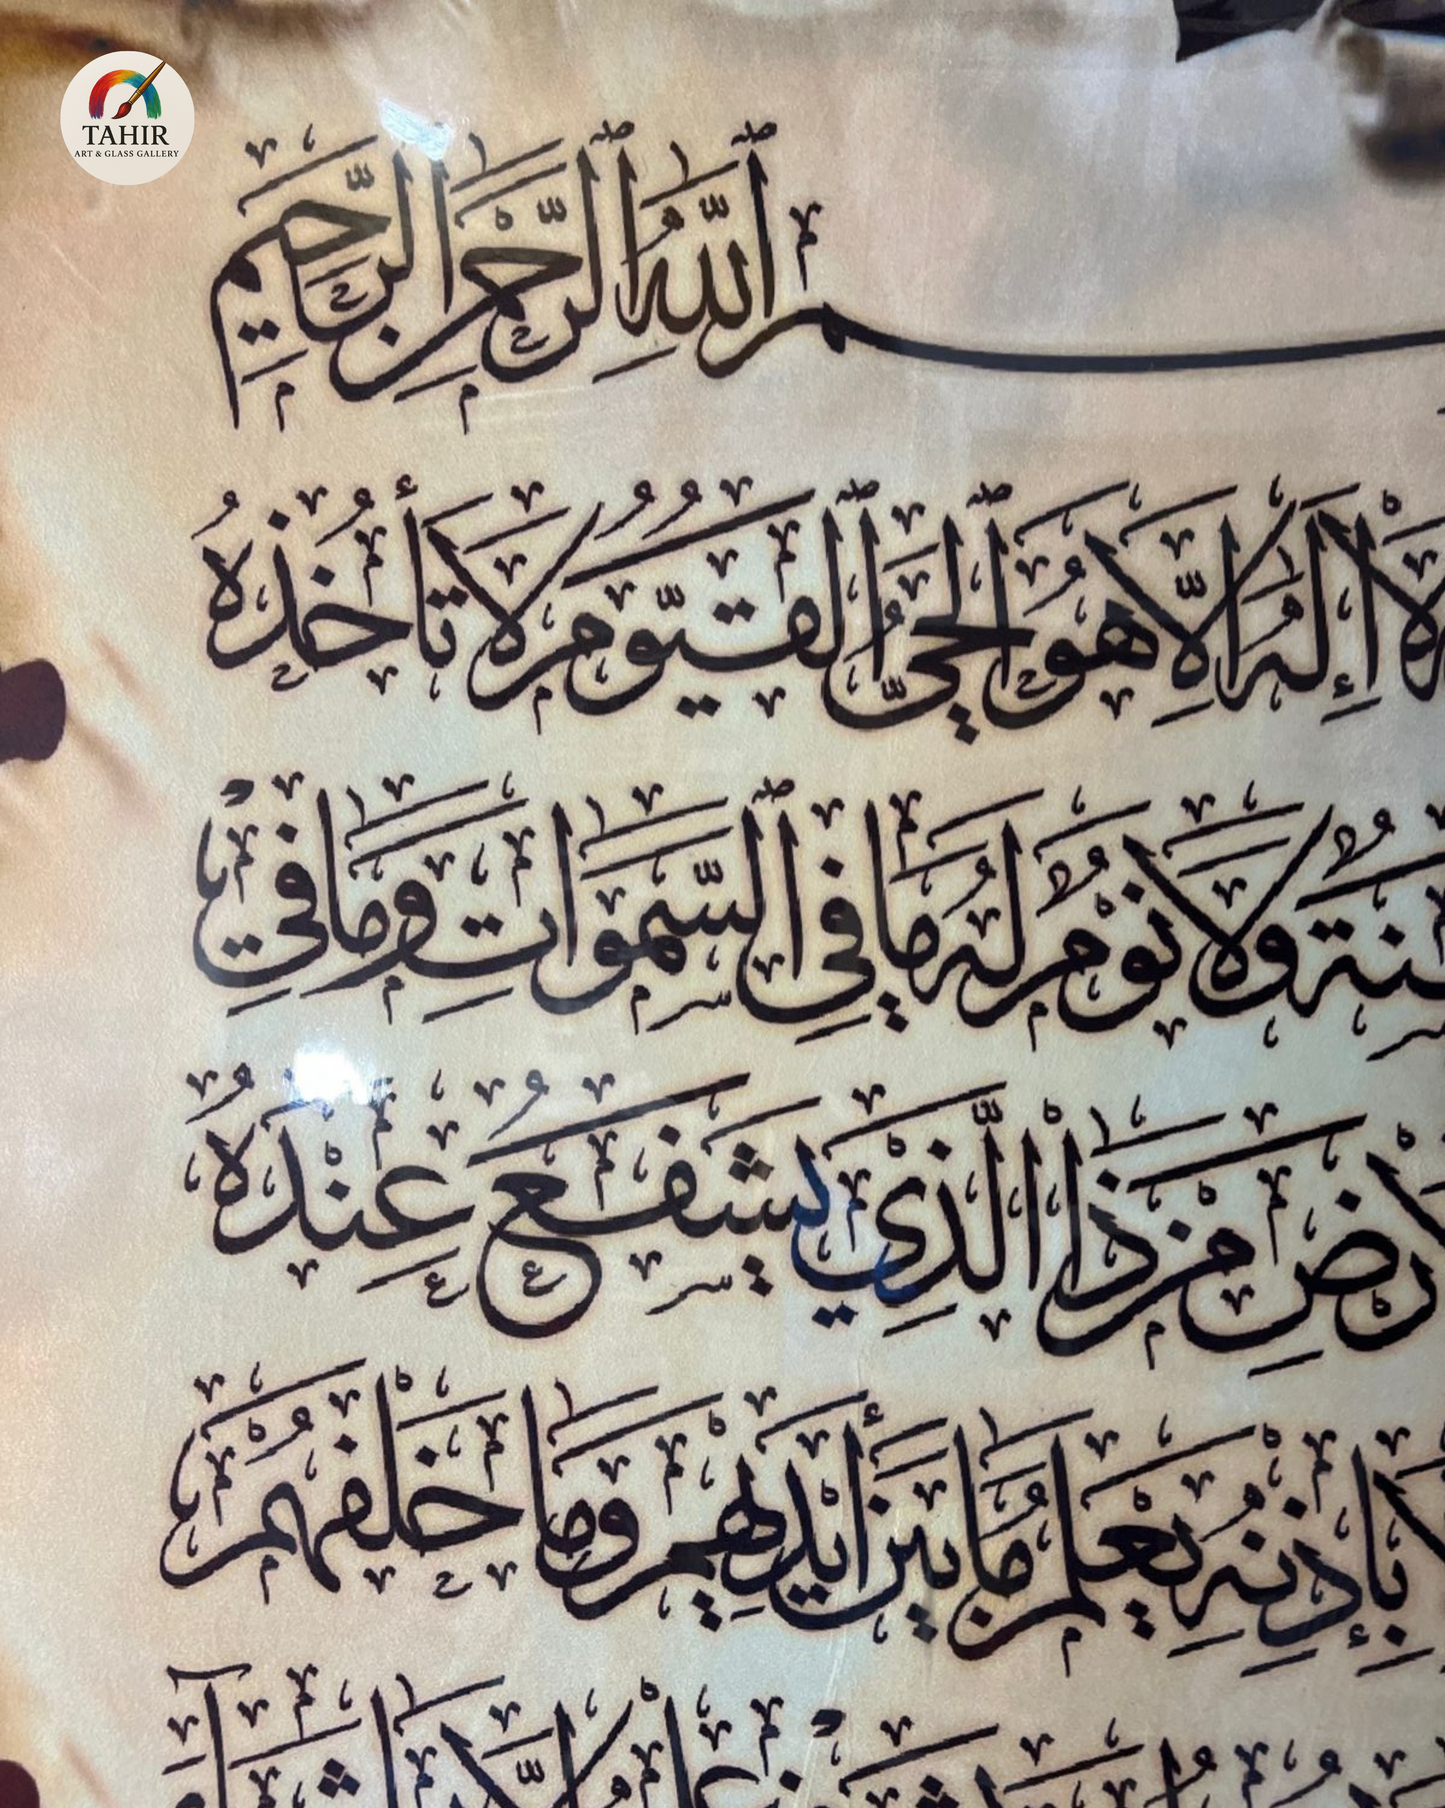 TAHIR
ART & GLASS GALLERY
بِسْمِ ٱللَّهِ ٱلرَّحْمَٰنِ ٱلرَّحِيمِ
لَا إِلَٰهَ إِلَّا هُوَ ٱلْحَيُّ ٱلْقَيُّومُ لَا تَأْخُذُهُ
سِنَةٌ وَلَا نَوْمٌ لَهُ مَا فِي ٱلسَّمَٰوَاتِ وَمَا فِي
ٱلْأَرْضِ مَنْ ذَا ٱلَّذِي يَشْفَعُ عِنْدَهُ
إِلَّا بِإِذْنِهِ يَعْلَمُ مَا بَيْنَ أَيْدِيهِمْ وَمَا خَلْفَهُمْ